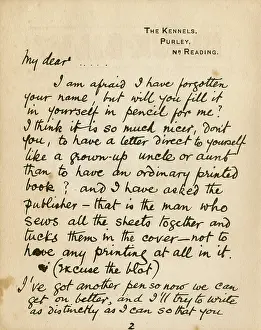 THE KENNELS,
PURLEY,
Nr READING.
My dear .....
I am afraid I have forgotten
your name, but will you fill it
in yourself in pencil for me?
I think it is so much nicer, don't
you, to have a letter direct to yourself
like a grown-up uncle or aunt
than to have an ordinary printed
book? and I have asked the
publisher - that is the man who
sews all the sheets together and
tucks them in the cover - not to
have any printing at all in it.
(Excuse the blot)
I've got another pen so now we can
get on better, and I'll try to write
as distinctly as I can so that you
2